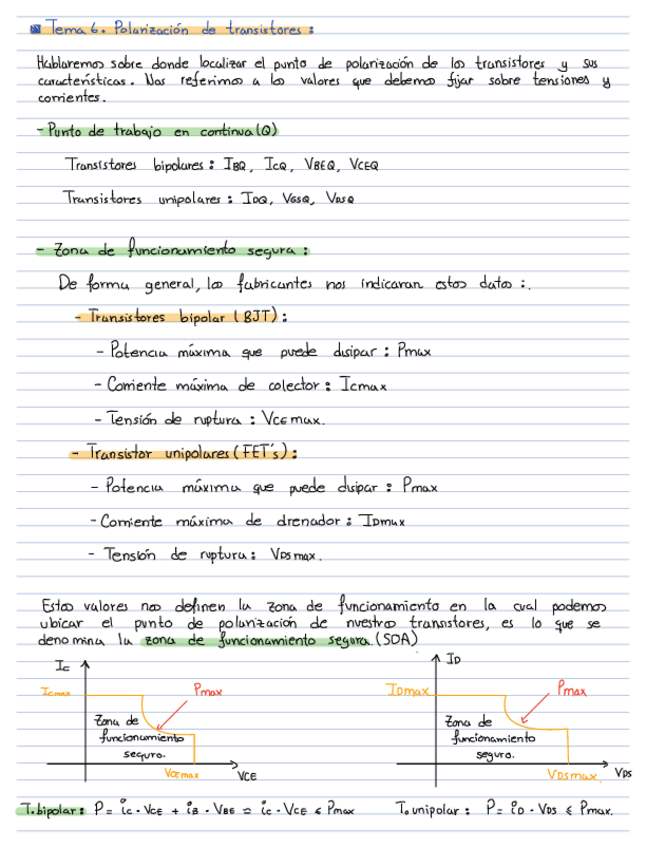 Tema 6. Polarización de transistores:
Hablaremos sobre donde localizar el punto de polarización de los transistores y sus
características. Nos referimos a los valores que debemos fijar sobre tensiones y
corrientes.
- Punto de trabajo en continua (Q)
Transistores bipolares: IBQ, ICQ, VBEQ, VCEQ
Transistores unipolares: IDQ, VGSQ, VDSQ
- Zona de funcionamiento segura:
De forma general, los fabricantes nos indicaran estos datos:.
- Transistores bipolar (BJT):
- Potencia máxima que puede disipar: Pmax
- Corriente máxima de colector: Icmax
- Tensión de ruptura: VCE max.
- Transistor unipolares (FET's):
- Potencia máxima que puede disipar: Pmax
- Corriente máxima de drenador: IDmax
- Tensión de ruptura: VDS max.
Estos valores nos definen la zona de funcionamiento en la cual podemos
ubicar el punto de polarización de nuestros transistores, es lo que se
denomina la zona de funcionamiento segura. (SOA)
Ic
Icmax
Pmax
Zona de
funcionamiento
seguro.
VCEmax
VCE
ID
IDmax
Pmax
Zona de
funcionamiento
seguro.
VDSmax.
VDS
T. bipolar: P = ic · VCE + iB · VBE = ic · VCE ≤ Pmax
T. unipolar: P = iD · VDS ≤ Pmax.